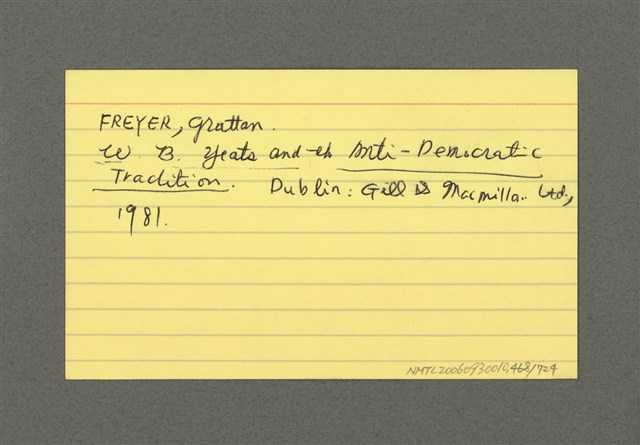 FREYER, Grattan.
W. B. Yeats and th Anti-Democratic
Tradition. Dublin: Gill & Macmilla.. Ltd.,
1981.
NMTL20060930010,468/724